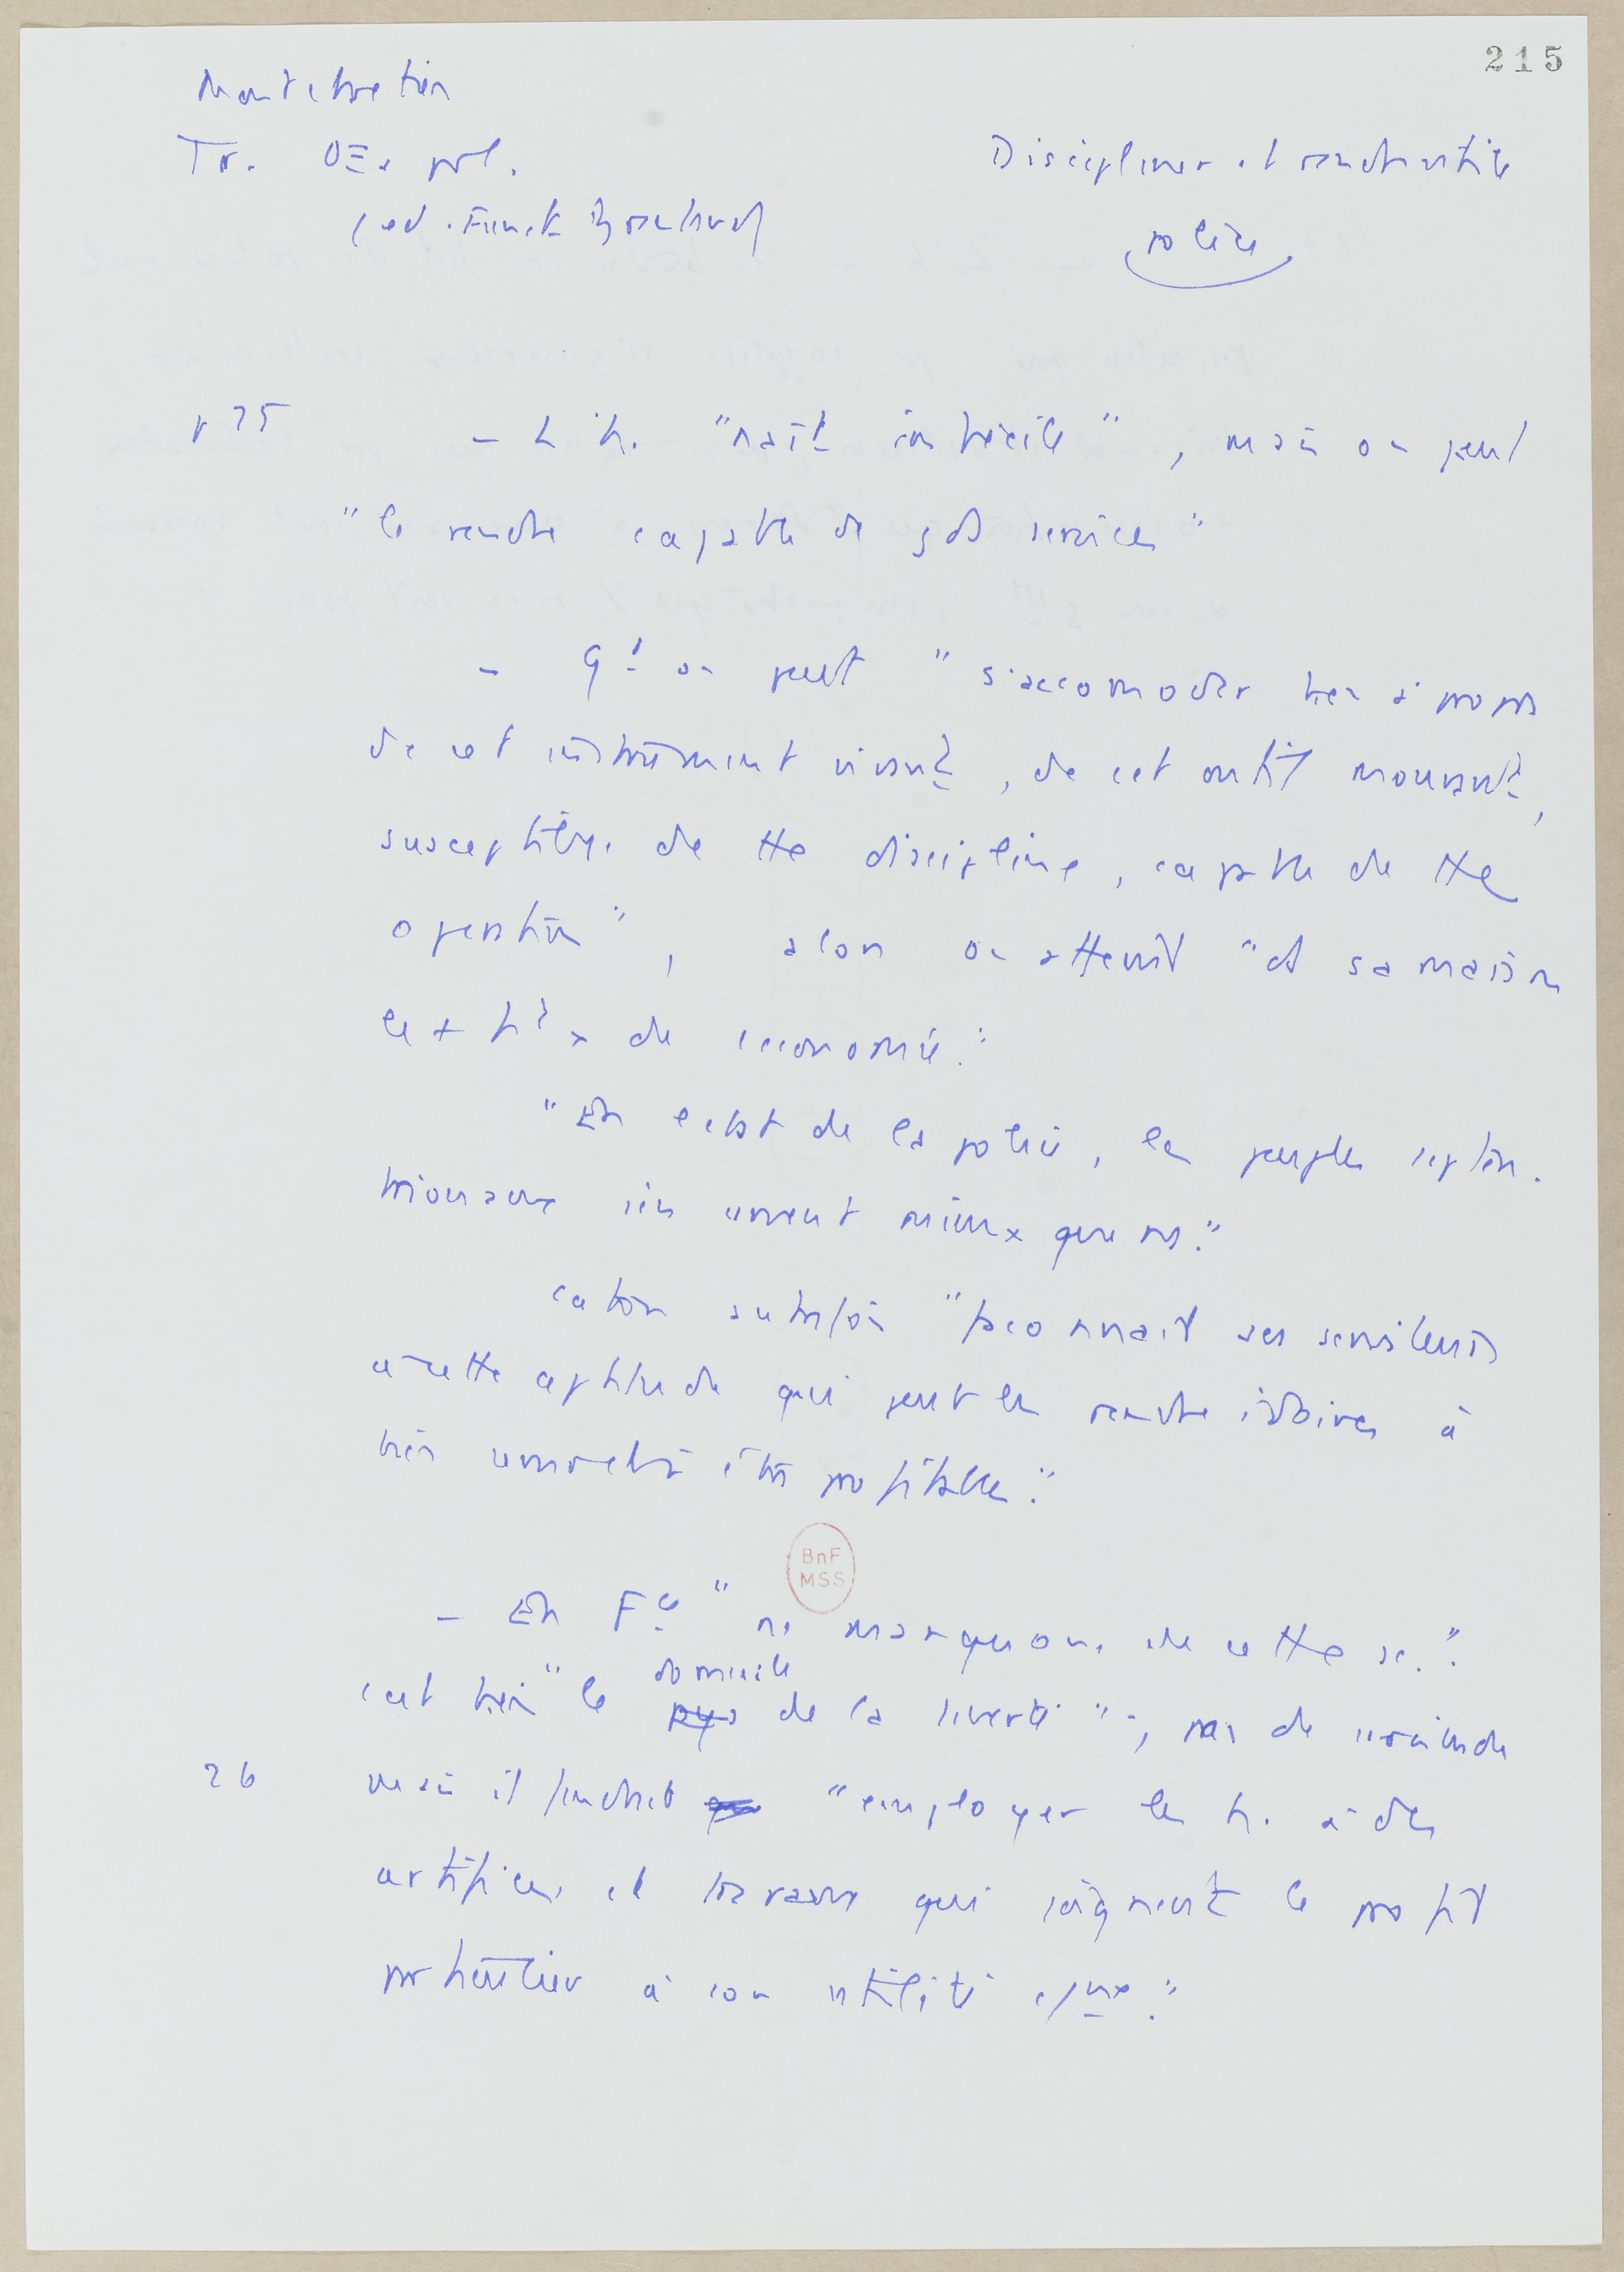 215
Montchretien
Tr. OEc pol.
(ed. Funck Brentano)
Discipliner et rendre utile
police
p 25 - L'h. "naît imbécile", mais on peut
"le rendre capable de gds services"
- Qd on peut "s'accomoder bien à propos
de cet instrument vivant, de cet outil mouvant,
susceptible de tte discipline, capable de tte
opération", alors on atteint "ds sa maison
le + ht x de l'economie."
"En cest de la police, les peuples septen.
trionaux s'en servent mieux que ns."
Caton autrefois "reconnait ses serviteurs
à cette aptitude qui peut les rendre idoines à
bien servir et à être profitables."
BnF
MSS
- En Fce " ne manquons de cette sc."
c'est bien "le pays domicile de la liberté", pas de
26 mais il faudrait "employer les h. à des
artifices et travaux qui joignent le profit
particulier à l'utilité